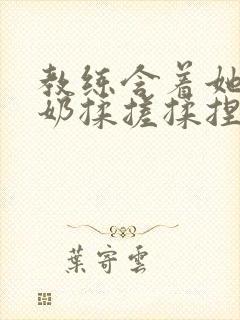 教练含着她
奶揉搓揉捏
葉寄雲